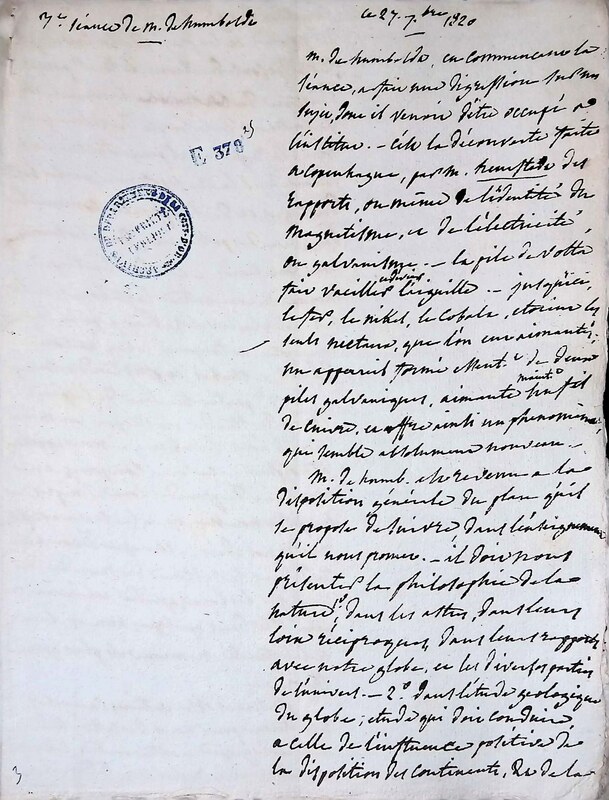 3e Séance de m. de humboldt
ce 27. 7.bre 1820
m. de humboldt, en commençant la
séance, a fait une digression sur un
sujet, dont il venoit d'être occupé a
l'institut. - C'est la découverte faite
a Copenhague, par m. des
rapports, ou même de l'identité du
magnetisme, et de l'électricité,
ou galvanisme. - la pile de volta
fait vaciller l'aiguille - jusqu'ici,
le fer, le nikel, le Cobalt, etoient les
seuls metaux, que l'on eut aimantés,
un appareil formé de deux
piles galvaniques, aimante un fil
de cuivre, et offre ainsi un phenomene
qui semble absolument nouveau. -
m. de humb. est revenu a la
disposition générale du plan qu'il
se propose de suivre dans l'enseignement
qu'il nous promet. - il doit nous
présenter la philosophie de la
nature 1º. dans les astres, dans leurs
loix réciproques, dans leurs rapports
avec notre globe, et les diverses parties
de l'univers - 2º. dans l'étude geologique
du globe; etude qui doit conduire
a celle de l'influence positive de
la disposition des continents, & de la
E 378
25
ARCHIVES DU DEPARTEMENT DE LA COTE D'OR
3